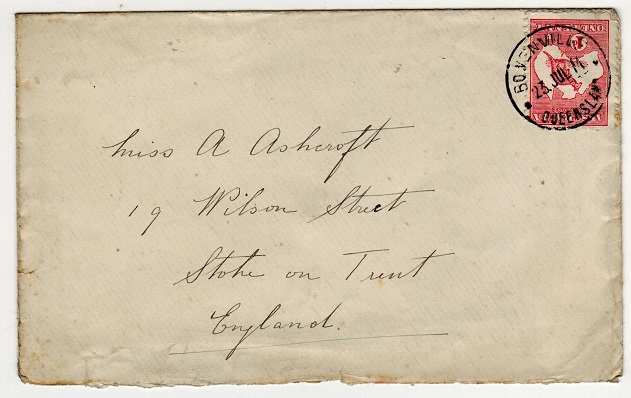 BOWENVILLE
23 JUL 14
QUEENSLAND
Miss A Ashcroft
19 Wilson Street
Stoke on Trent
England.